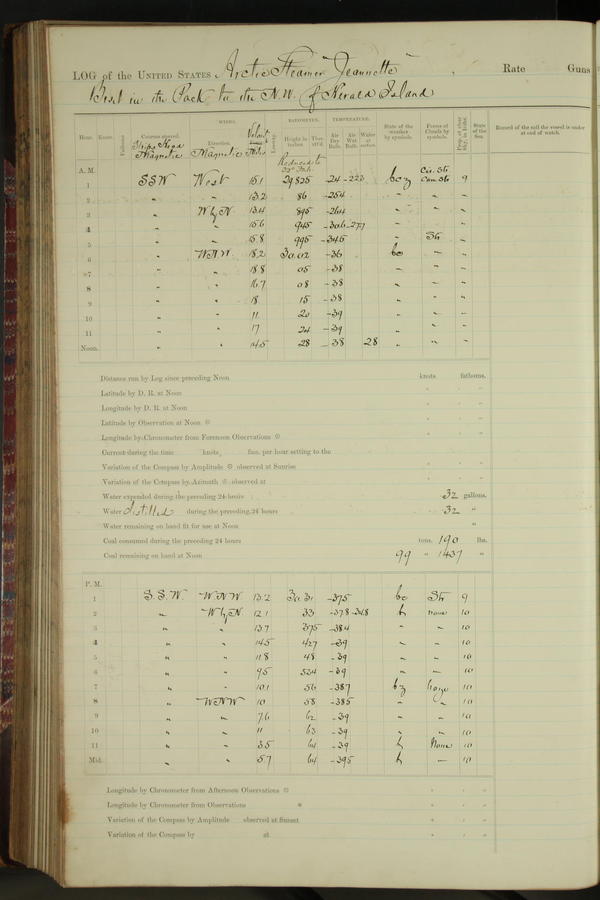 LOG of the UNITED STATES Arctic Steamer "Jeannette", Rate Guns
Beset in the Pack to the N.W. of Herald Island
WINDS. BAROMETER. TEMPERATURE.
Hour. Knots. Fathoms. Courses steered. Direction. Velocity Leeway. Height in inches. Ther. att'd. Air Dry Bulb. Air Wet Bulb. Water at surface. State of the weather by symbols. Forms of Clouds by symbols. State of the Sea. Record of the sail the vessel is under at end of watch.
Ships Head Magnetic Magnetic Reduced to 32° Fah.
A. M. Cir. Str.
1 SSW West 15.1 29.825 -24 -22.2 bcz Cum Str 9
2 " " 13.2 86 -25.4 " " "
3 " W by N. 13.4 895 -26.4 " " "
4 " " 15.6 945 -30.6 -27.7 " " "
5 " " 15.8 995 -34.5 " Str "
6 " WNW. 18.2 30.02 -36 bc " "
7 " " 18.8 05 -38 " " "
8 " " 16.7 08 -38 " " "
9 " " 18 15 -38 " " "
10 " " 11 20 -39 " " "
11 " " 17 24 -39 " " "
Noon. " " 14.5 28 -38 28 " " "
Distance run by Log since preceding Noon knots fathoms.
Latitude by D. R. at Noon ° ' "
Longitude by D. R. at Noon ° ' "
Latitude by Observation at Noon ° ' "
Longitude by Chronometer from Forenoon Observations ° ' "
Current during the time knots, fms. per hour setting to the
Variation of the Compass by Amplitude observed at Sunrise ° ' "
Variation of the Compass by Azimuth observed at ° ' "
Water expended during the preceding 24 hours 32 gallons.
Water distilled during the preceding 24 hours 32 "
Water remaining on hand fit for use at Noon "
Coal consumed during the preceding 24 hours tons. 190 lbs.
Coal remaining on hand at Noon 99 " 1437 "
P. M.
1 S.S.W. WNW. 13.2 30.31 -37.5 bc Str 9
2 " W by N. 12.1 33 -37.8 -34.8 b none 10
3 " " 13.7 375 -38.4 " " 10
4 " " 14.5 427 -39 " " 10
5 " " 11.8 48 -39 " " 10
6 " " 9.5 534 -39 " " 10
7 " " 10.1 56 -38.7 bz haze 10
8 " WNW 10 58 -38.5 " " 10
9 " " 7.6 62 -39 " " 10
10 " " 11 63 -39 " " 10
11 " " 3.5 64 -39 b None 10
Mid. " " 5.7 64 -39.5 b " 10
Longitude by Chronometer from Afternoon Observations ° ' "
Longitude by Chronometer from Observations * ° ' "
Variation of the Compass by Amplitude observed at Sunset ° ' "
Variation of the Compass by at ° ' "